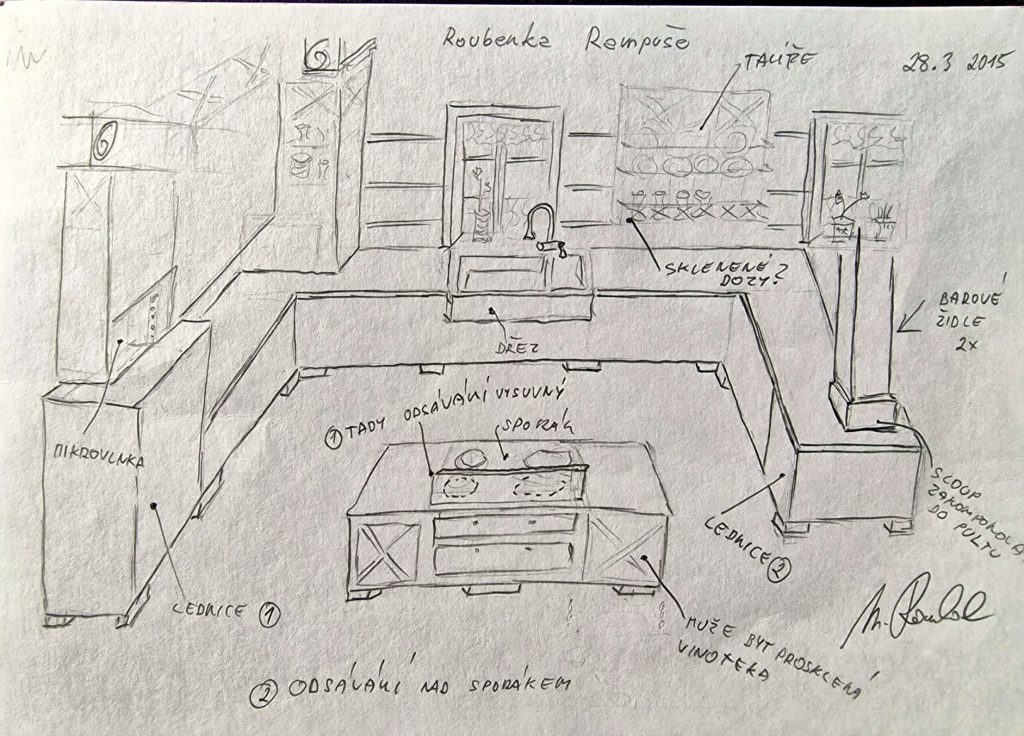 Roubenka Rampuše
28.3 2015
TALÍŘE
SKLENENÉ
DOZY?
BAROVÉ
ŽIDLE
2x
DŘEZ
① TADY ODSÁVÁNÍ VYSUVNÝ
SPORÁK
MIKROVLNKA
SLOUP
ZAKOMPONOVA
DO PULTU
LEDNICE ②
LEDNICE ①
MUŽE BÝT PROSKLENÁ
VINOTEKA
② ODSÁVÁNÍ NAD SPORÁKEM